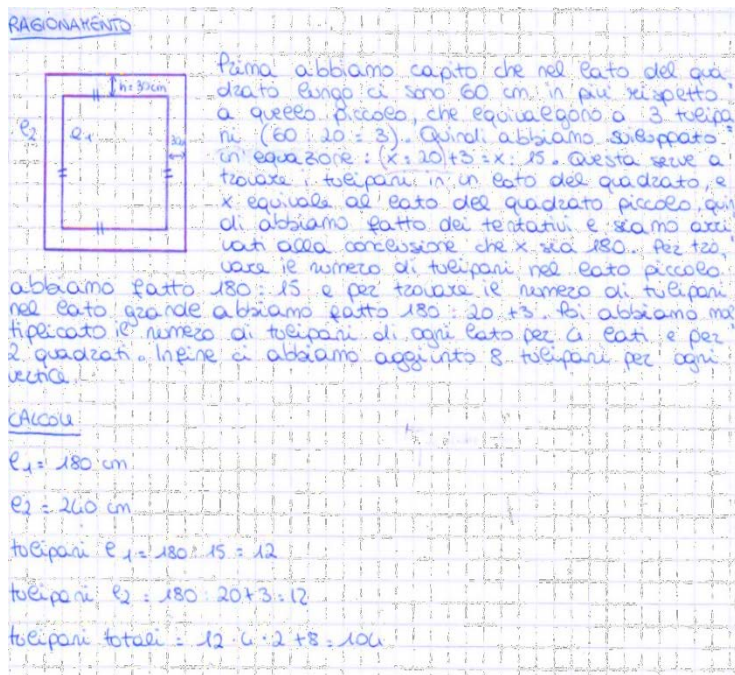 RAGIONAMENTO
Prima abbiamo capito che nel lato del qua
drato lungo ci sono 60 cm in più rispetto
a quello piccolo, che equivalgono a 3 tulipa
ni (60 : 20 = 3). Quindi abbiamo sviluppato
un'equazione : (x : 20)+3 = x : 15. Questa serve a
trovare i tulipani in un lato del quadrato, e
x equivale al lato del quadrato piccolo, quin
di abbiamo fatto dei tentativi e siamo arri
vati alla conclusione che x sia 180. Per tro,
vare il numero di tulipani nel lato piccolo
abbiamo fatto 180 : 15 e per trovare il numero di tulipani
nel lato grande abbiamo fatto 180 : 20 +3. Poi abbiamo mol
tiplicato il numero di tulipani di ogni lato per 4 lati e per
2 quadrati. Infine ci abbiamo aggiunto 8 tulipani per ogni
vertice.
h=30cm
l2
l1
CALCOLI
l1= 180 cm
l2 = 240 cm
tulipani l1 = 180 : 15 = 12
tulipani l2 = 180 : 20+3 = 12
tulipani totali = 12 · 4 · 2 +8 = 104